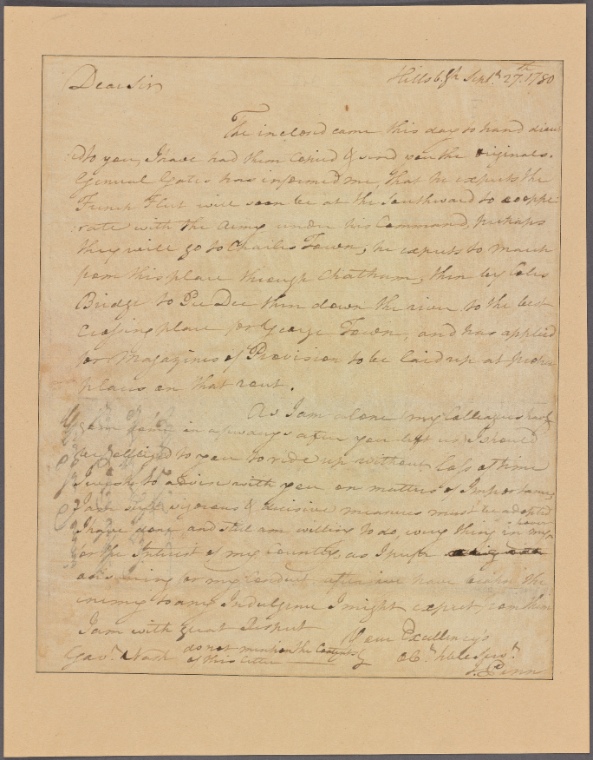 Dear Sir
Hillsbgh Sept. 27th 1780
The inclosed came this day to hand direc
ted to you, I have had them Copied & send you the originals.
General Gates has informed me, that he expects the
French Fleet will soon be at the Southward to coope
rate with the Army under his Command, perhaps
they will go to Charles Town, he expects to march
from this place through Chatham, then by Coles
Bridge to Pee Dee then down the river to the best
crossing place for George Town, and has applied
for Magazines of Provision to be laid up at proper
places on that rout.
As I am alone my Colleagues having
gone in a few days after you left us, I should
be obliged to you to ride up without loss of time
I wish to advise with you on matters of Importance,
vigorous & decisive measures must be adopted
I have done, and still am willing to do, every thing in my power
for the Interest of my country, as I prefer
the
enemy to any Indulgence I might expect from them
I am with great Respect
Your Excellency's
Obt. hble Servt.
J. Penn
Govr. Nash
do not mention the Contents
of this letter